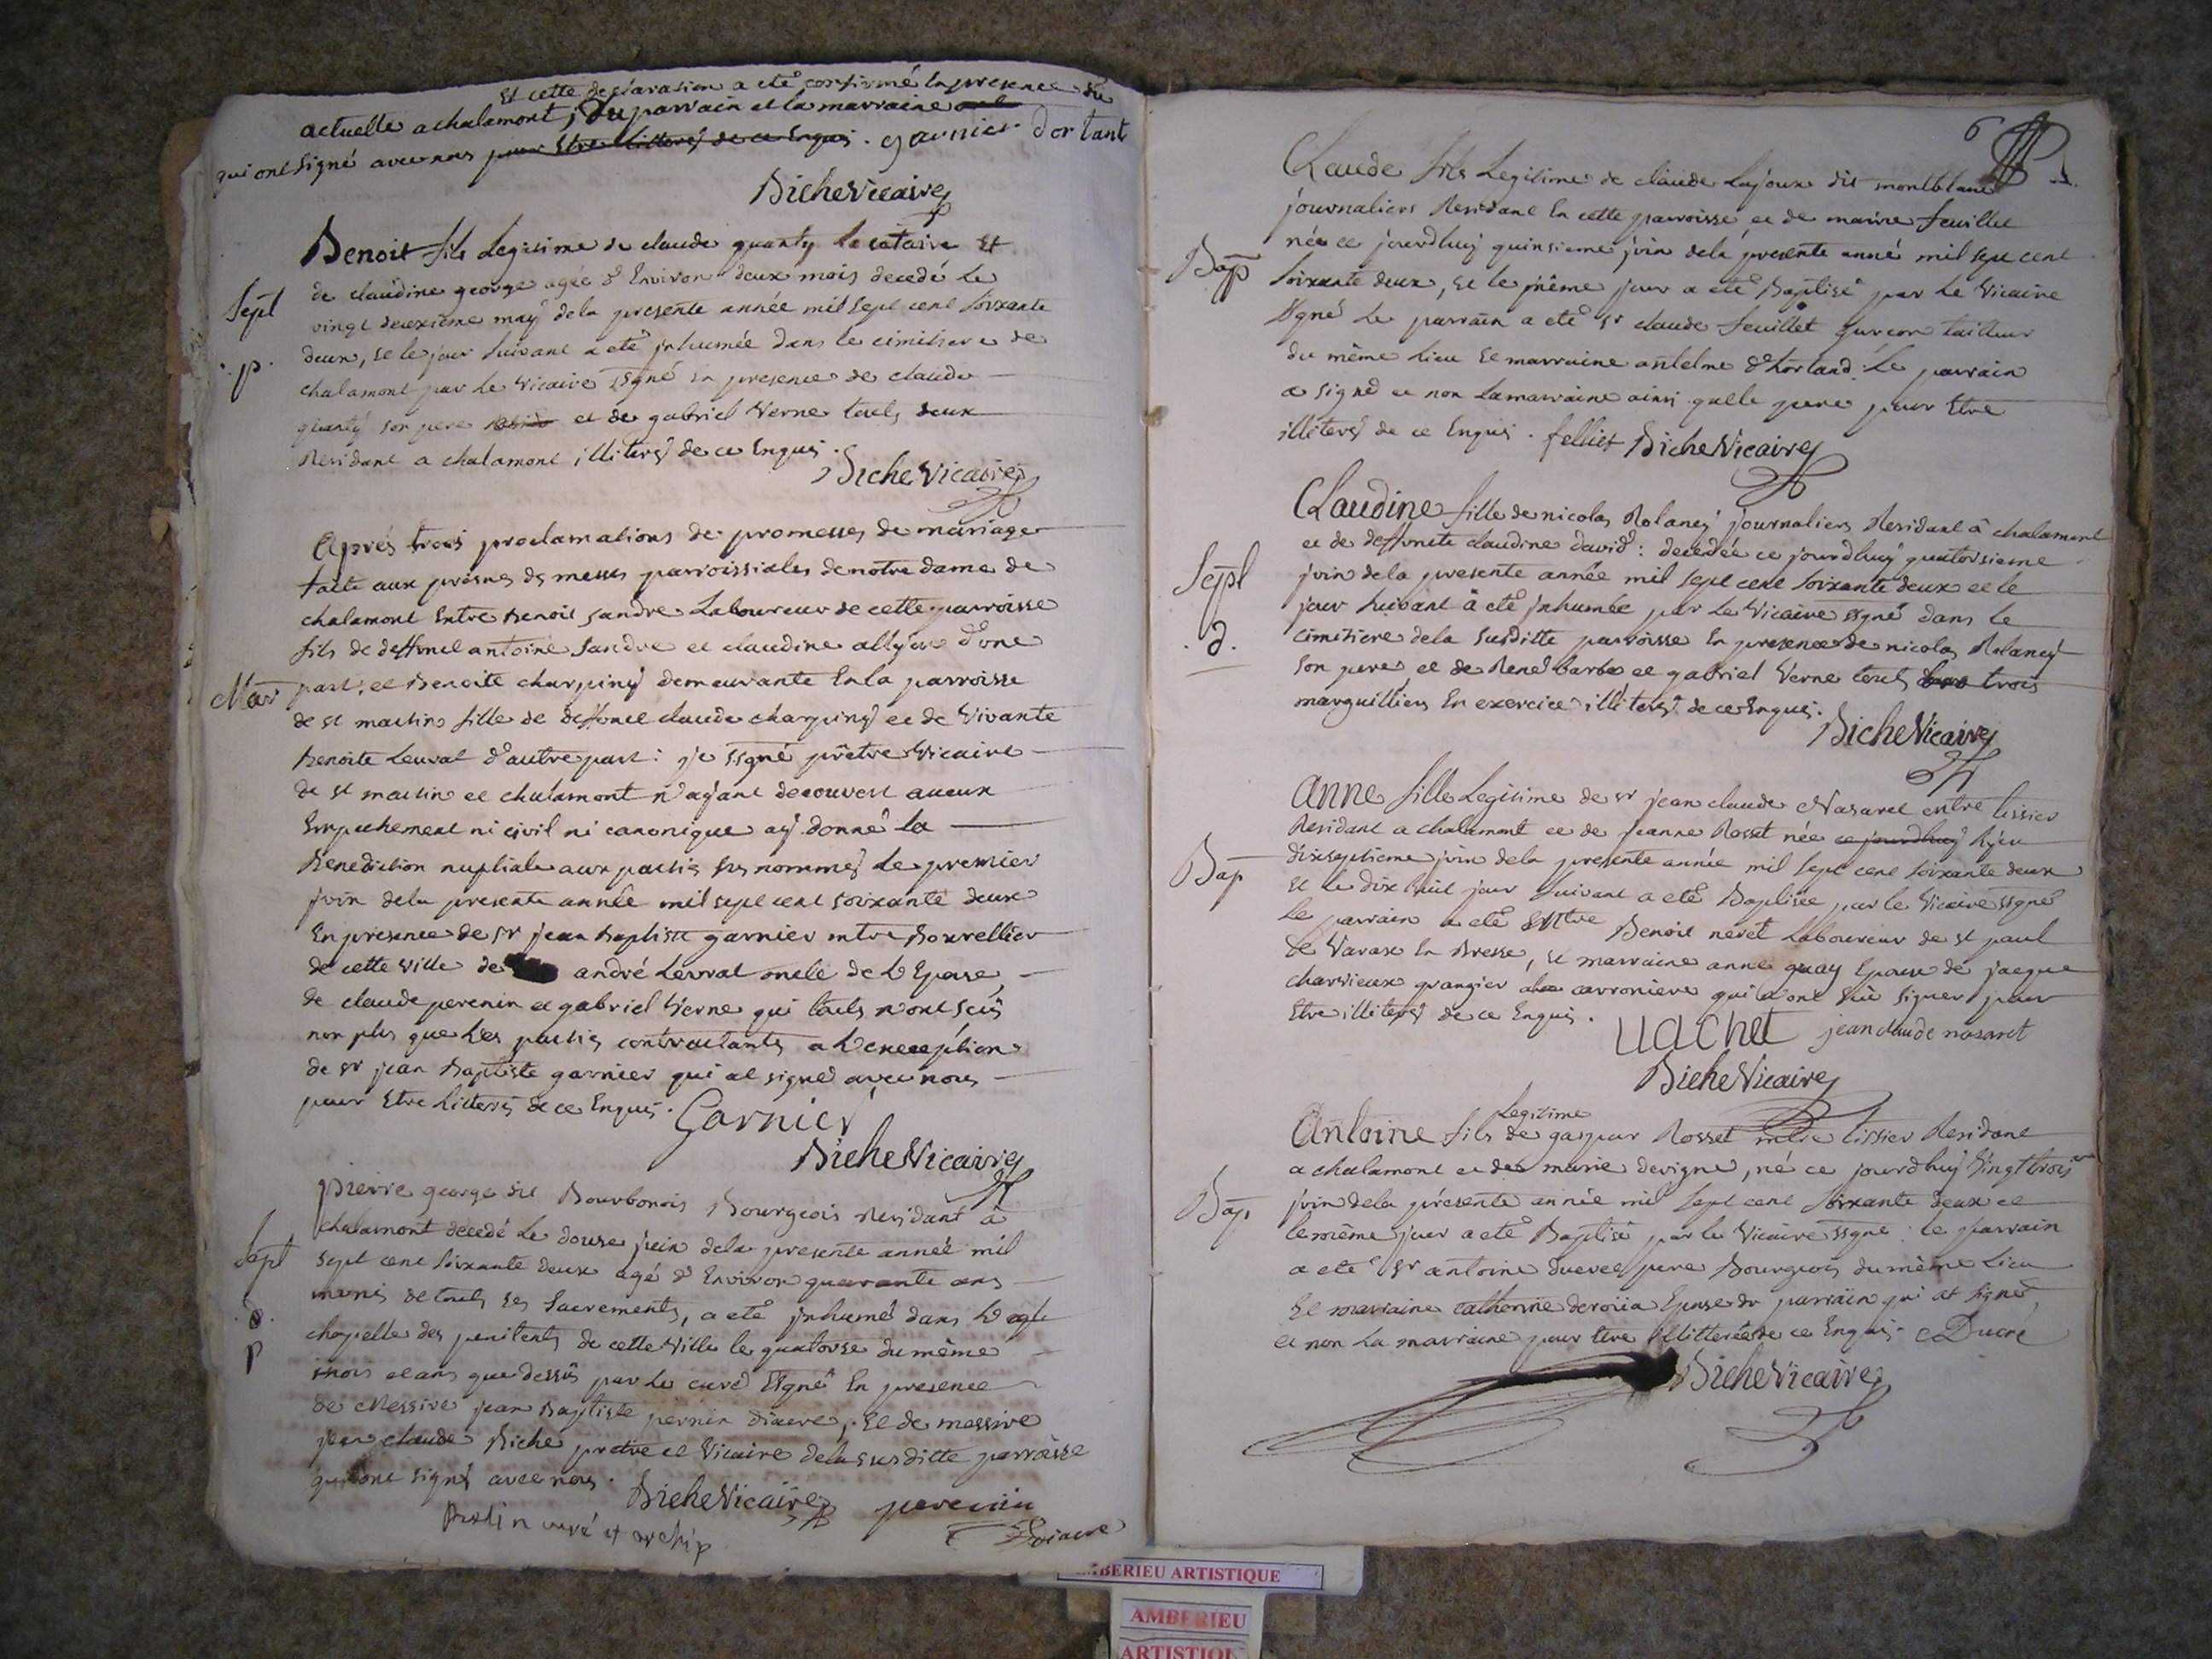 Et cette declaration a eté confirmé En presence du
actuelle a chalamont, du parrain et la marraine
qui ont signé avec nous pour Etre illiterés de ce Enquis. garnier Dortant
Biche Vicaire
Benoit fils Legitime de claude quanty Locataire Et
de claudine george agée d'Environ deux mois decedé Le
Sept
vingt deuxieme may dela presente année mil sept cent soixante
deux, et le jour suivant a eté inhumée dans le cimitiere de
p.
chalamont par Le Vicaire ssgné En presence de claude
quanty son pere et de gabriel Verne touts deux
Residant a chalamont illiterés de ce Enquis.
Biche Vicaire
Aprés trois proclamations de promesses de mariage
faite aux prosnes des messes parroissiales de notre dame de
chalamont Entre Benoit sandre Laboureur de cette parroisse
fils de deffunct antoine sandre et claudine d'une
Mar
part, et Benoite charpiny demeurante En la parroisse
de st martin fille de deffunct claude charpiny et de Vivante
Benoite Leuvat d'autre part: je ssgné prêtre Vicaire
de st martin et chalamont n'ayant decouvert aucun
Empechement ni civil ni canonique ay donné la
Benediction nuptiale aux partis sus nommés Le premier
juin dela presente année mil sept cent soixante deux
En presence de sr jean Baptiste garnier mtre Bourellier
de cette ville de andré Levrat oncle de L'Epouse,
de claude perenin et gabriel Verne qui touts n'ont sçû
non plus que les partis contractants a L'exception
de sr jean Baptiste garnier qui at signé avec nous
pour Etre illiterés de ce Enquis. Garnier
Biche Vicaire
pierre george dit Bourbonois Bourgeois Residant à
chalamont decedé Le douse juin dela presente année mil
Sept
sept cent soixante deux agé d'Environ quarante ans
munis de touts ses sacrements, a eté inhumé dans L'
d.
chapelle des penitents de cette Ville le quatorse du même
p
mois et ans que dessûs par Le curé ssgné En presence
de Messire jean Baptiste pernin diacre, et de messire
jean claude Biche pretre et Vicaire dela susditte parroisse
qui ont signé avec nous.
Biche Vicaire perenin
curé et archip diacre
6
Claude fils Legitime de claude Lajoux dit montblanc
journaliers Residant En cette parroisse et de marie feuillet
née ce jourdhuy quinsieme juin dela presente anné mil sept cent
Bap
soixante deux, et le même jour a eté Baptisé par Le Vicaire
ssgné Le parrain a eté sr claude feuillet garcon tailleur
du même Lieu Et marraine antelme d'hortand. Le parrain
a signé et non Lamarraine ainsi qu'elle pere pour Etre
illiterés de ce Enquis. felliet Biche Vicaire
Claudine fille de nicolas Rolancy journaliers Residant à chalamont
et de deffuncte claudine david: decedée ce jourdhuy quatorsieme
Sept
juin dela presente année mil sept cent soixante deux et le
jour suivant à eté inhumée par Le Vicaire ssgné dans le
.d.
cimitiere dela susditte parroisse En presence de nicolas Rolancy
son pere et de René barbe et gabriel Verne touts trois
marguilliers En exercice illiterés de ce Enquis.
Biche Vicaire
Anne fille Legitime de sr jean claude Nasaret mtre tissier
Residant a chalamont et de jeanne Rosset née ce jourdhuy hyer
Bap
dixseptieme juin dela presente année mil sept cent soixante deux
Et le dix huit jour suivant a eté Baptisée par le Vicaire ssgné
Le parrain a eté Benoit neret Laboureur de st paul
de Varax En Bresse, et marraine anne quay Epouse de jacque
charvieux grangier carroniere qui n'ont sçû signer pour
Etre illiterés de ce Enquis.
Uachet jean claude nasaret
Biche Vicaire
Legitime
Antoine fils de gaspar Rosset mtre tissier Residant
a chalamont et de marie devigne, né ce jourdhuy vingt trois
Bap
juin dela présente année mil sept cent soixante deux et
le même jour a eté Baptisé par le Vicaire ssgné: le parrain
a eté sr antoine ducré pere Bourgeois du même Lieu
Et marraine catherine Epouse du parrain qui at signé
et non La marraine pour Etre illiterée de ce Enquis. Ducré
Biche Vicaire
AMBERIEU ARTISTIQUE
AMBERIEU
ARTISTIQU